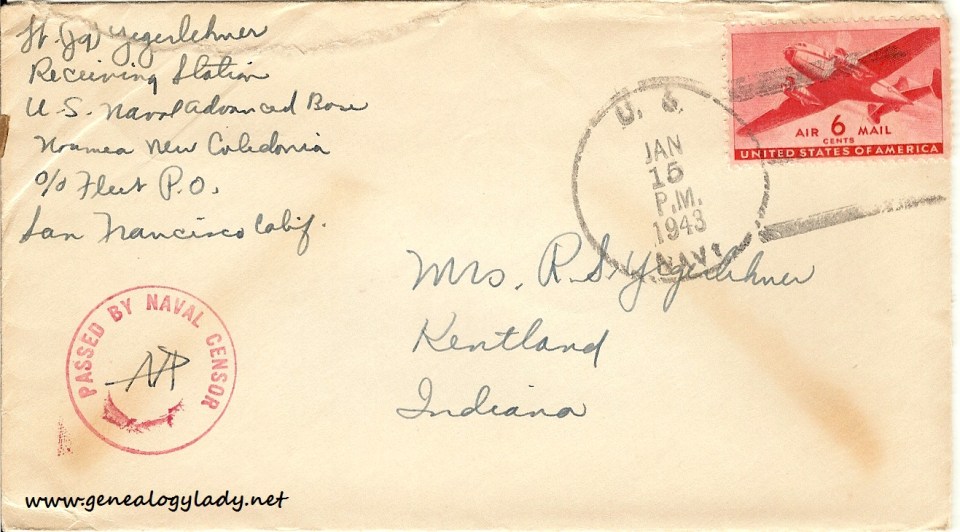 Lt. (jg) Yegerlehner
Receiving Station
U. S. Naval Advanced Base
Noumea New Caledonia
c/o Fleet P.O.
San Francisco Calif.
U. S.
JAN
15
P.M.
1943
NAVY
AIR 6 MAIL
CENTS
UNITED STATES OF AMERICA
Mrs. R S Yegerlehner
Kentland
Indiana
PASSED BY NAVAL CENSOR
www.genealogylady.net